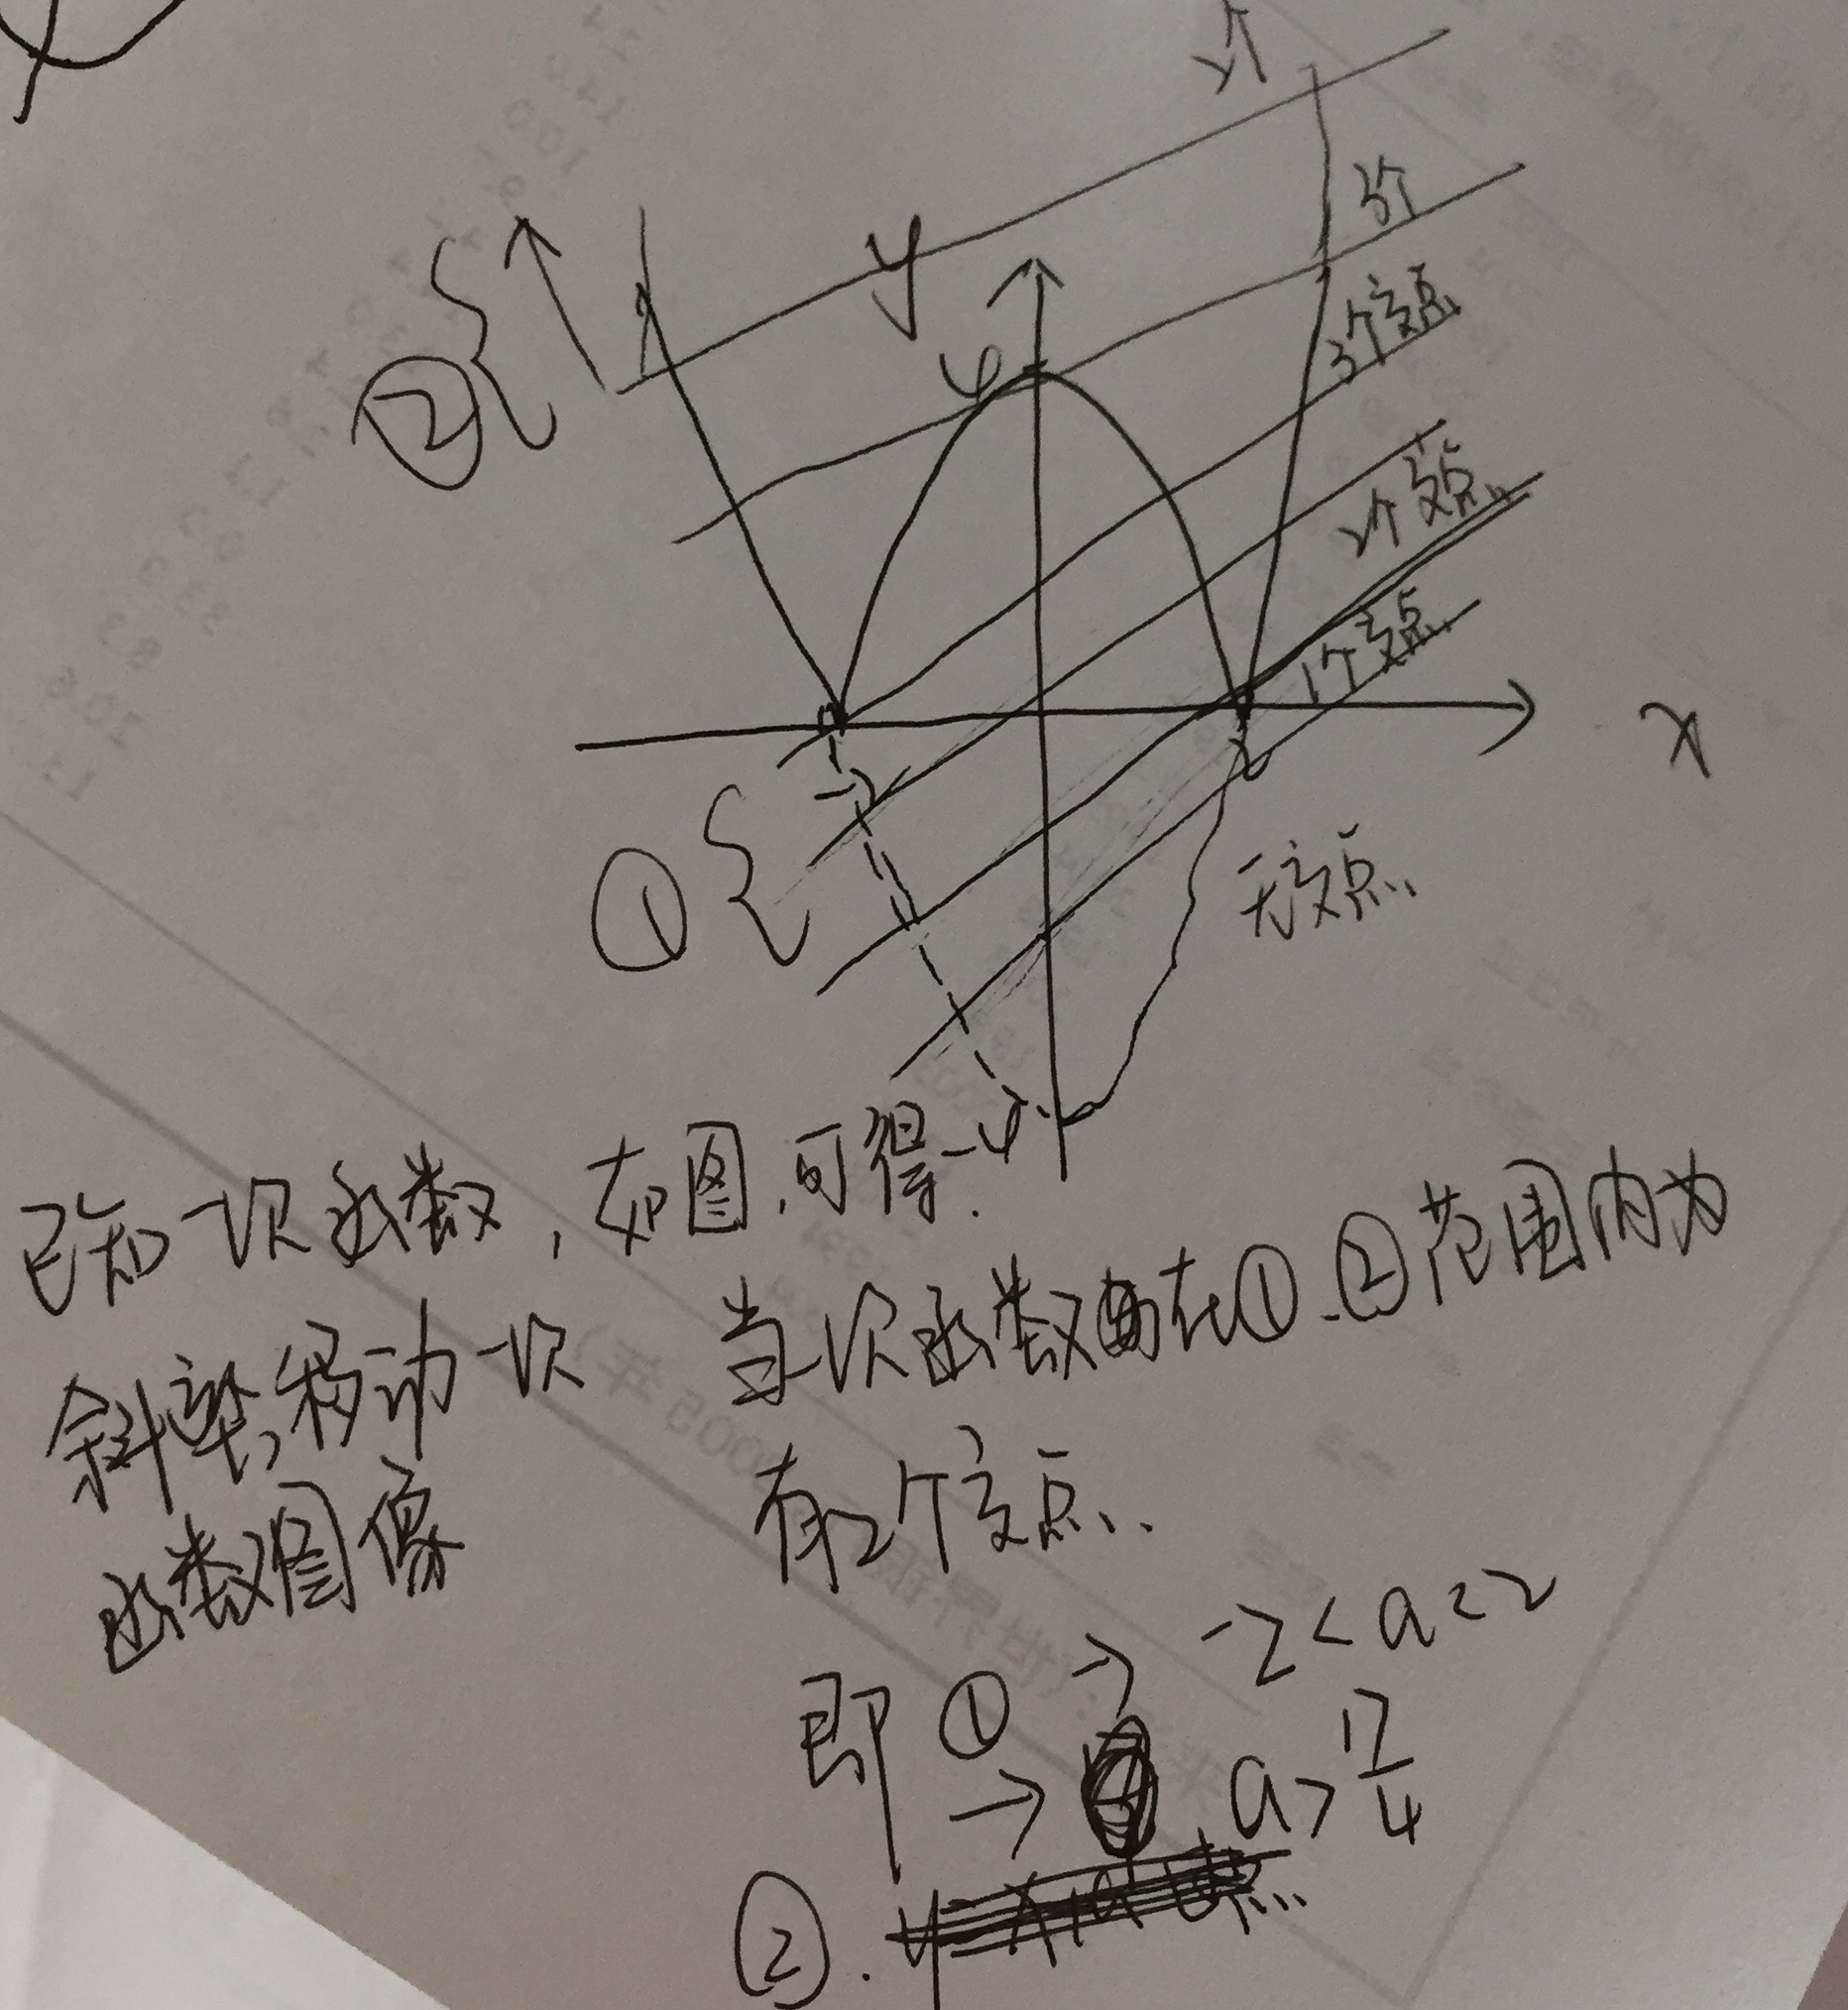 2个
y
3个
4
3个交点
②
2个交点
1个交点
-2
2
x
①
无交点
-4
已知一次函数,如图,可得.
斜率,移动一次
函数图像
当一次函数在①.②范围内为
有2个交点.
即 ① → -2<a<2
→ a>17/4
②.